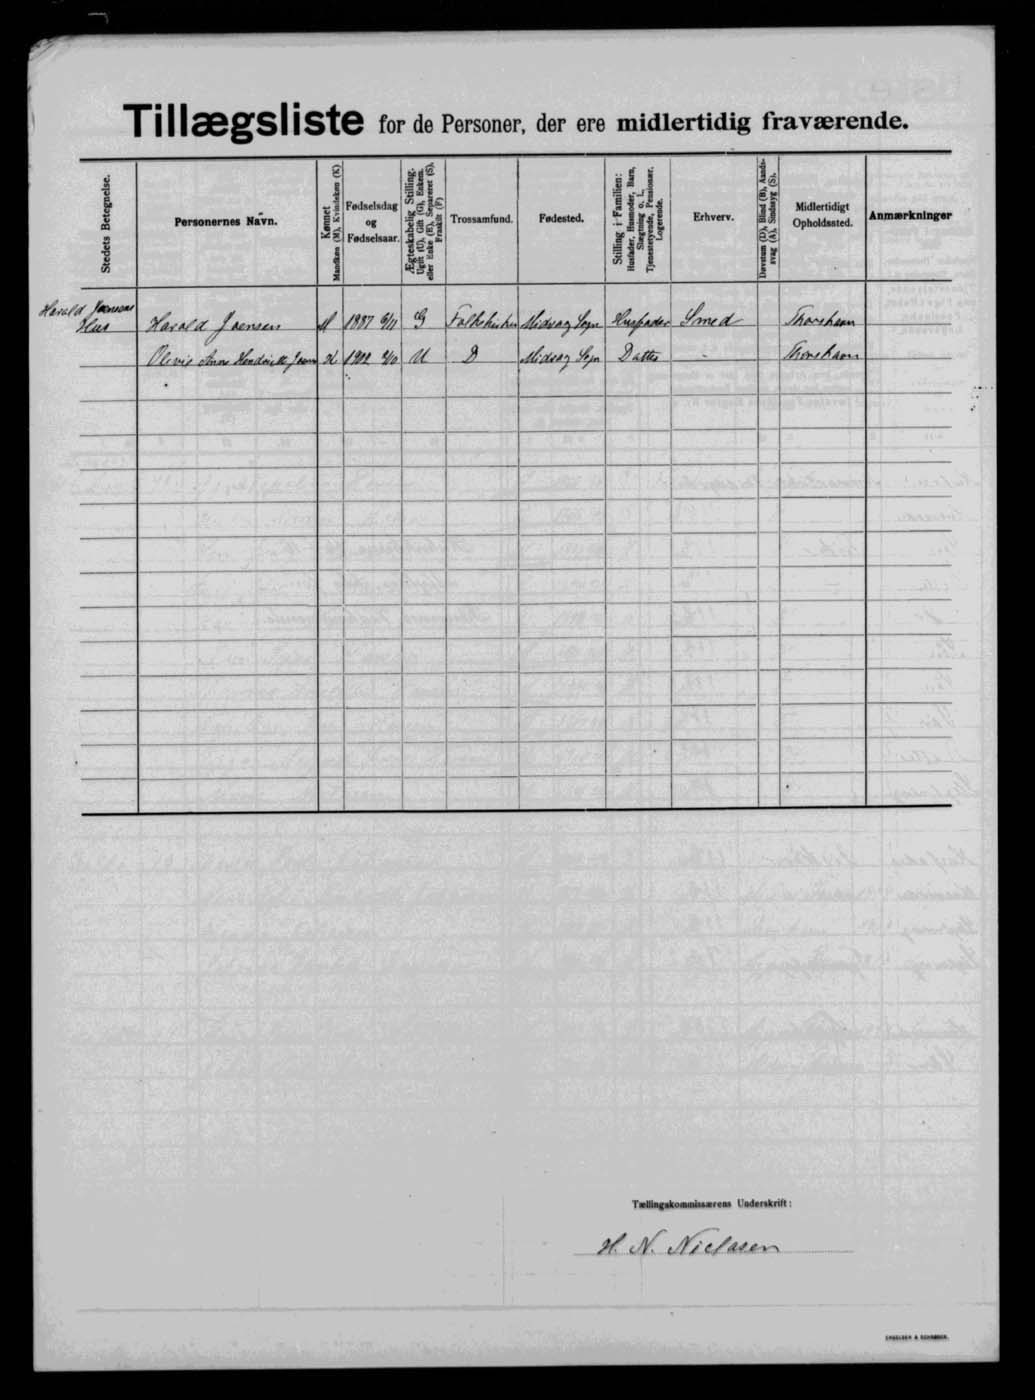 Tillægsliste for de Personer, der ere midlertidig fraværende.
Stedets Betegnelse.
Personernes Navn.
Kønnet
Mandkøn (M), Kvindekøn (K)
Fødselsdag
og
Fødselsaar.
Ægteskabelig Stilling.
Ugift (U), Gift (G), Enkem.
eller Enke (E), Separeret (S),
Fraskilt (F)
Trossamfund.
Fødested.
Stilling i Familien:
Husfader, Husmoder, Barn,
Slægtning o. l.,
Tjenestetyende, Pensionær,
Logerende.
Erhverv.
Døvstum (D), Blind (B), Aands-
svag (A), Sindssyg (S).
Midlertidigt
Opholdssted.
Anmærkninger
Harald Joensens
Hus Harald Joensen M 1887 6/11 G Folkekirken Midvaag Sogn Husfader Smed Thorshavn
Anna K 1902 U D Midvaag Sogn Datter - Thorshavn
Tællingskommissærens Underskrift:
H. N. Niclasen
ENGELSEN & SCHRØDER.